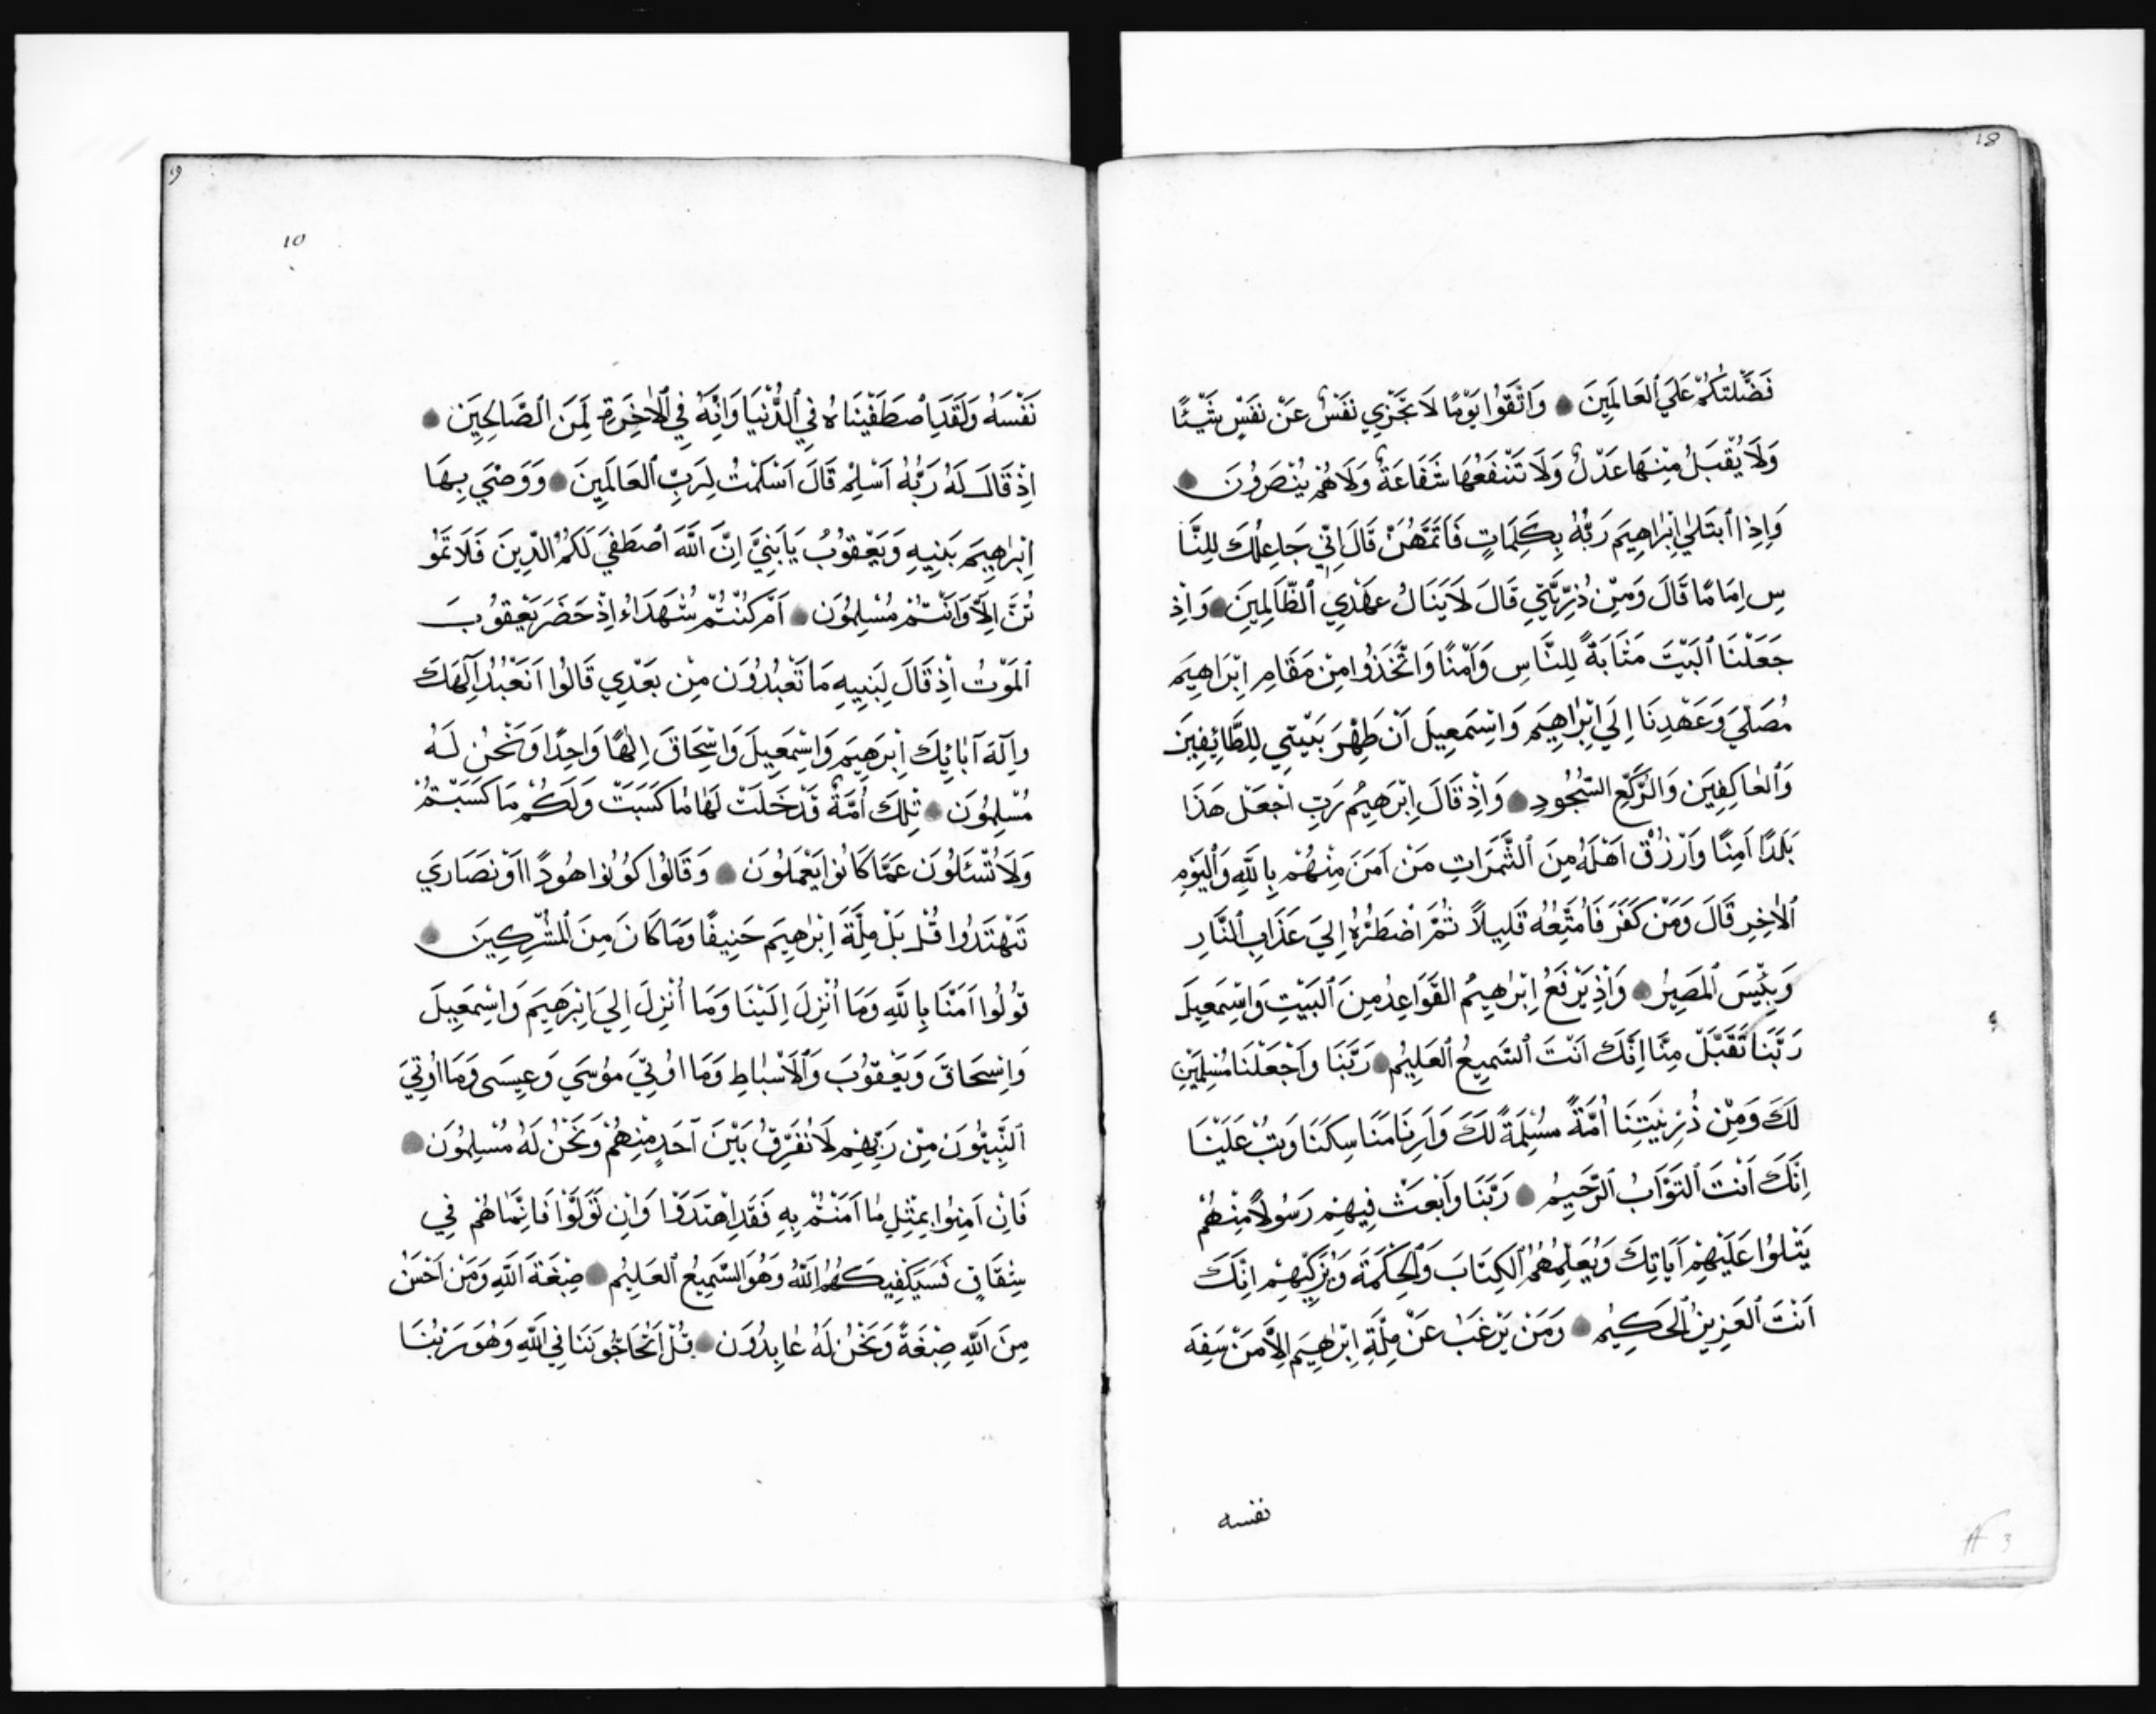 18
فَضَّلْتُكُمْ عَلَي ٱلعَالَمِينَ وَاتَّقُوا يَوْمًا لَا تَجْزِي نَفْسٌ عَنْ نَفْسٍ شَيْئًا
وَلَا يُقْبَلُ مِنْهَا عَدْلٌ وَلَا تَنْفَعُهَا شَفَاعَةٌ وَلَاهُمْ يُنْصَرُونَ
وَاِذِ اٱبْتَلَي اِبْرَاهِيَم رَبُّهُ بِكَلِمَاتٍ فَاَتَمَّهُنَّ قَالَ اِنِّي جَاعِلُكَ لِلنَّا
سِ اِمَامًا قَالَ وَمِنْ ذُرِّيَّتِي قَالَ لَايَنَالُ عَهْدِي ٱلظَّالِمِينَ وَاِذْ
جَعَلْنَا ٱلبَيْتَ مَثَابَةً لِلنَّاسِ وَاَمْنًا وَاتَّخَذُوا مِنْ مَقَامِ اِبْرَاهِيَم
مُصَلّيً وَعَهْدِنَا اِلَي اِبْرَاهِيَم وَاِسْمَعِيلَ اَنْ طَهِّرَ بَيْتِي لِلطَّائِفِيَن
وَٱلعَاكِفِيَن وَالرُّكَّعِ السُّجُودِ وَاِذْ قَالَ اِبْرَهِيُم رَبِّ اجْعَلْ هَذَا
بَلَدًا اَمِنًا وَٱرْزُقْ اَهْلَهُ مِنَ ٱلثَّمَرَاتِ مَنْ اَمَنَ مِنْهُمْ بِاللَّهِ وَٱلْيَوْمِ
ٱلْاخِرِ قَالَ وَمَنْ كَفَرَ فَاُمَتِّعُهُ قَلِيلًا ثُمَّ اَضْطَرُّهُ اِلَيَ عَذَابِ ٱلنَّارِ
وَبِئْسَ ٱلمَصِيرُ وَاِذْ يَرْفَعُ اِبْرٰهِيمُ القَوَاعِدُ مِنَ ٱلبَيْتِ وَاِسْمَعِيلَ
رَبَّنَا تَقَبَّلْ مِنَّا اِنَّكَ اَنْتَ السَّمِيعُ ٱلعَلِيُم رَبَّنَا وَٱجْعَلْنَا مُسْلِمَيْنِ
لَكَ وَمِنْ ذُرِّيَتِنَا اُمَّةً مُسْلِمَةً لَكَ وَاَرِنَا مَنَاسِكَنَا وَتُبْ عَلَيْنَا
اِنَّكَ اَنْتَ ٱلتَوَّابُ ٱلرَّحِيمُ رَبَّنَا وَٱبْعَثْ فِيهِمْ رَسُولًا مِنْهُمْ
يَتْلُوا عَلَيْهِمْ اَيَاتِكَ وَيُعَلِّمُهُمُ ٱلكِتَابَ وَٱلحِكْمَةَ وَيُزَكِّيهِمْ اِنَّكَ
اَنْتَ ٱلعَزِيزُ ٱلحَكِيمُ وَمَنْ يَرْغَبُ عَنْ مِلَّةِ اِبْرٰهِيَم اِلَّا مَنْ سَفِهَ
نفسه
3
10
نَفْسَهُ وَلَقَدِ اصْطَفَيْنَاهُ فِي ٱلدُّنْيَا وَاِنَّهُ فِي ٱلْاخِرَةِ لَمِنَ الصَّالِحِيَن
اِذْ قَالَ لَهُ رَبُّهُ اَسْلِمْ قَالَ اَسْلَمْتُ لِرَبِّ ٱلعَالَمِينَ وَوَصَّي بِهَا
اِبْرٰهِيَم بَنِيهِ وَيَعْقُوُبُ يَابَنِيَّ اِنَّ اللَّهَ ٱصْطَفَي لَكُمُ الدِّينَ فَلَا تَمُو
تُنَّ اِلَّا وَاَنْتُمْ مُسْلِمُوَن اَمْ كُنْتُمْ شُهَدَاءُ اِذْ حَضَرَ يَعْقُوبَ
ٱلمَوْتُ اِذْ قَالَ لِبَنِيهِ مَا تَعْبُدُوَن مِنْ بَعْدِي قَالُوا نَعْبُدُ اِلَهَكَ
واِلَهَ آبَائِكَ اِبْرَهِيَم وَاِسْمَعِيلَ وَاِسْحَاقَ اِلٰهًا وَاحِدًا وَنَحْنُ لَهُ
مُسْلِمُوَن تِلْكَ اُمَّةٌ قَدْ خَلَتْ لَهَا مَا كَسَبَتْ وَلَكُمْ مَا كَسَبْتُمْ
وَلَا تُسْئَلُوَن عَمَّا كَانُوا يَعْمَلُوَن وَقَالُوا كُونُوا هُودًا اَوْ نَصَارَي
تَهْتَدُوا قُلْ بَلْ مِلَّةَ اِبْرٰهِيَم حَنِيفًا وَمَا كَانَ مِنَ ٱلمُشْرِكِينَ
قُولُوا اَمَنَّا بِاللَّهِ وَمَا اُنْزِلَ اِلَيْنَا وَمَا اُنْزِلَ اِلَيَ اِبْرَهِيَم وَاِسْمَعِيلَ
وَاِسْحَاقَ وَيَعْقُوُبَ وَٱلْاَسْبَاطِ وَمَا اوُتِيَ مُوُسَي وَعِيسَى وَمَا اُوتِيَ
ٱلنَّبِيُّوَن مِنْ رَبِّهِمْ لَا نُفَرِّقُ بَيْنَ اَحَدٍ مِنْهُمْ وَنَحْنُ لَهُ مُسْلِمُوَن
فَاِنْ اَمَنُوا بِمِثْلِ مَا اَمَنْتُمْ بِهِ فَقَدِ اهْتَدَوْا وَاِنْ تَوَلَّوْا فَاِنَّمَا هُمْ فِي
شِقَاقٍ فَسَيَكْفِيكَهُمُ اللَّهُ وَهُوَ السَّمِيعُ ٱلعَلِيُم صِبْغَةَ اللَّهِ وَمَنْ اَحْسَنُ
مِنَ اللَّهِ صِبْغَةً وَنَحْنُ لَهُ عَابِدُوَن قُلْ اَتُحَاجُّونَنَا فِي اللَّهِ وَهُوَ رَبُّنَا